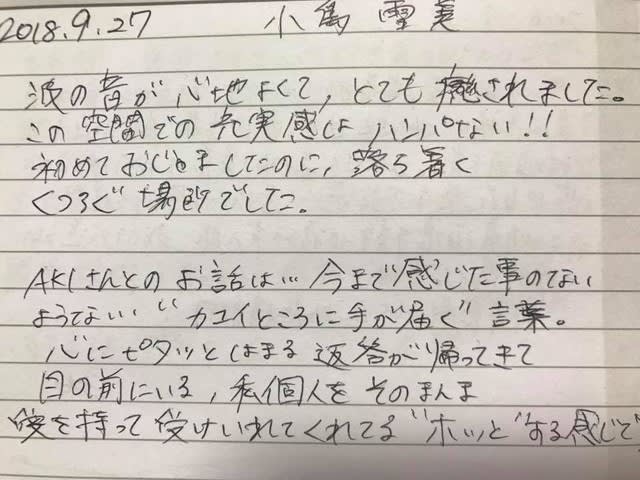 2018.9.27 小島 雪美
波の音が心地よくて、とても癒されました。
この空間での充実感はハンパない!!
初めておじゃましたのに、落ち着く
くつろぐ場所でした。
AKIさんとのお話は…今まで感じた事のない
ようない“カユイところに手が届く”言葉。
心にピタッとはまる返答が帰ってきて
目の前にいる、私個人をそのまんま
愛を持って受けいれてくれてる“ホッと”する感じで